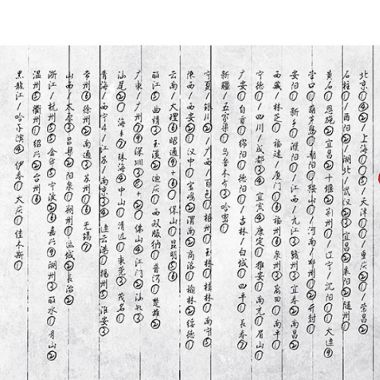 北京④/上海⑤/天津①/重庆②/荣昌②
石柱①酉阳②/湖北/武汉②宜昌②随州①
黄石①恩施①十堰②荆州①/辽宁/沈阳①大连④
营口①葫芦岛①朝阳①鞍山①/河南/郑州②开封①
安阳①新乡①濮阳①/江西/九江③赣州③宜春②南昌②
西藏/林芝①/福建/厦门⑥福州⑥泉州③莆田①南平①
宁德①/四川/成都③④宜宾④康定①雅安①南充①眉山①
广安①自贡①绵阳①德阳①/吉林/白城①四平①长春⑦
新疆/五家渠①乌鲁木齐③哈密①
宁夏/银川②/广西/百色①梧州①玉林①桂林①南宁⑤
陕西/西安②汉中①宝鸡②渭南②商洛①榆林②绥德①
云南/大理⑥昭通④+⑥保山④昆明⑤⑥
丽江②曲靖③玉溪②迪庆①西双版纳①普洱①楚雄②
广东/广州⑦深圳③+②佛山④江门②汕头③
汕尾②海丰②珠海④中山①清远①东莞③茂名①
青海/西宁④/江苏/南京④连云港①扬州⑤淮安③
常州⑥徐州②南通③苏州⑥无锡⑦
山西/太原③吕梁②阳泉①朔州①运城②长治②
浙江/杭州⑤⑤金华⑤宁波②⑥嘉兴④湖州③丽水①舟山②
温州⑤衢州①绍兴①台州⑥
黑龙江/哈尔滨④伊春①大庆①佳木斯①